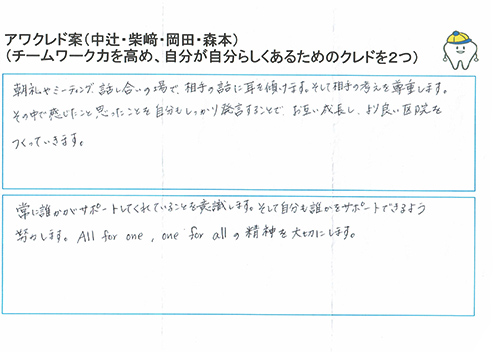 アワクレド案(中辻・柴﨑・岡田・森本)
(チームワーク力を高め、自分が自分らしくあるためのクレドを2つ)
朝礼やミーティング、話し合いの場で、相手の話に耳を傾けます。そして相手の考えを尊重します。
その中で感じたこと思ったことを自分もしっかり発言することで、お互い成長し、より良い医院を
つくっていきます。
常に誰かがサポートしてくれていることを意識します。そして自分も誰かをサポートできるよう
努力します。All for one, one for all の精神を大切にします。